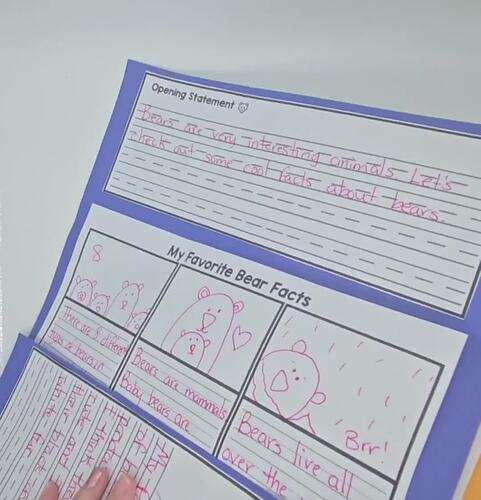 Opening Statement
Bears are very interesting animals Let's
check out some cool facts about bears.
My Favorite Bear Facts
8
There are 8 different
types of bears in
Bears are mammals
Baby bears are
Brr!
Bears live all
over the
My
think
cute and
their black
white fur